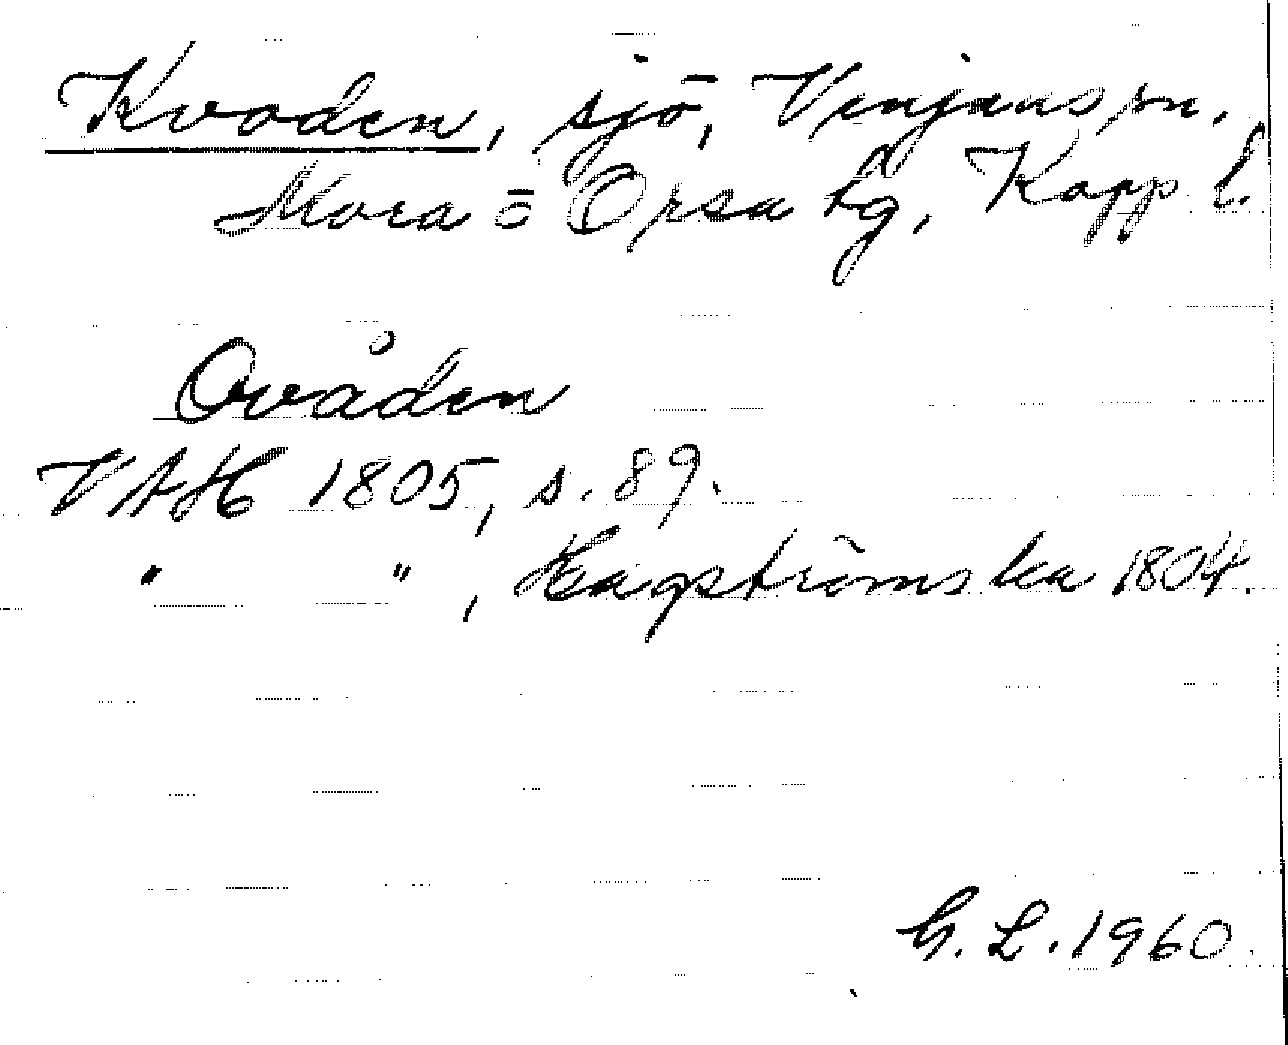 Kvoden, sjö, Venjans sn.
Mora o Orsa tg, Kopp l.
Qvåden
VAH 1805, s. 89.
" ", Hagströmska 1804.
G. L. 1960.